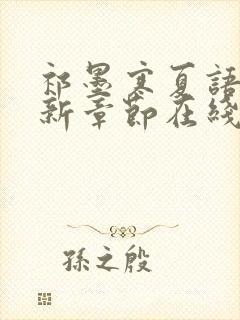 祁墨寒夏語
新章節在綫
孫之殷